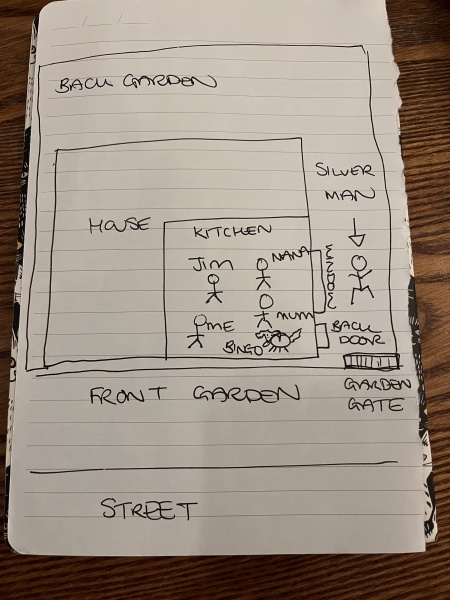 BACK GARDEN
SILVER
MAN
HOUSE
KITCHEN
JIM
NANA
WINDOW
ME
MUM
BINGO
BACK
DOOR
GARDEN
GATE
FRONT GARDEN
STREET